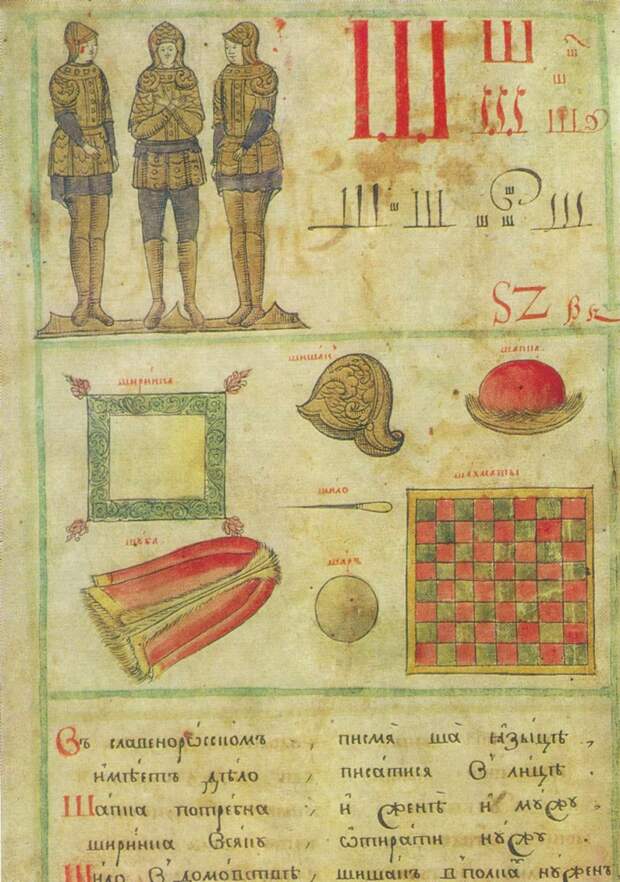 Ш Ш ш
ш
Ш Ш
Ш ш Ш ш ш ш ш Ш
SZ
ширинка. шишакъ шапка.
шило шахматы
шꙋба. шаръ
Въ славенорꙋсскомъ , писмѧ̀ ша ꙗ҆зыцѣ ,
и҆мѣетъ дѣло , писатисѧ в лицѣ .
Шапка потребна , и҆ женѣ и҆ мꙋжꙋ .
ширинка всѧкъ , ѡтирати нꙋжꙋ .
Шило в домовствѣ , шишакъ в полкахъ нꙋженъ